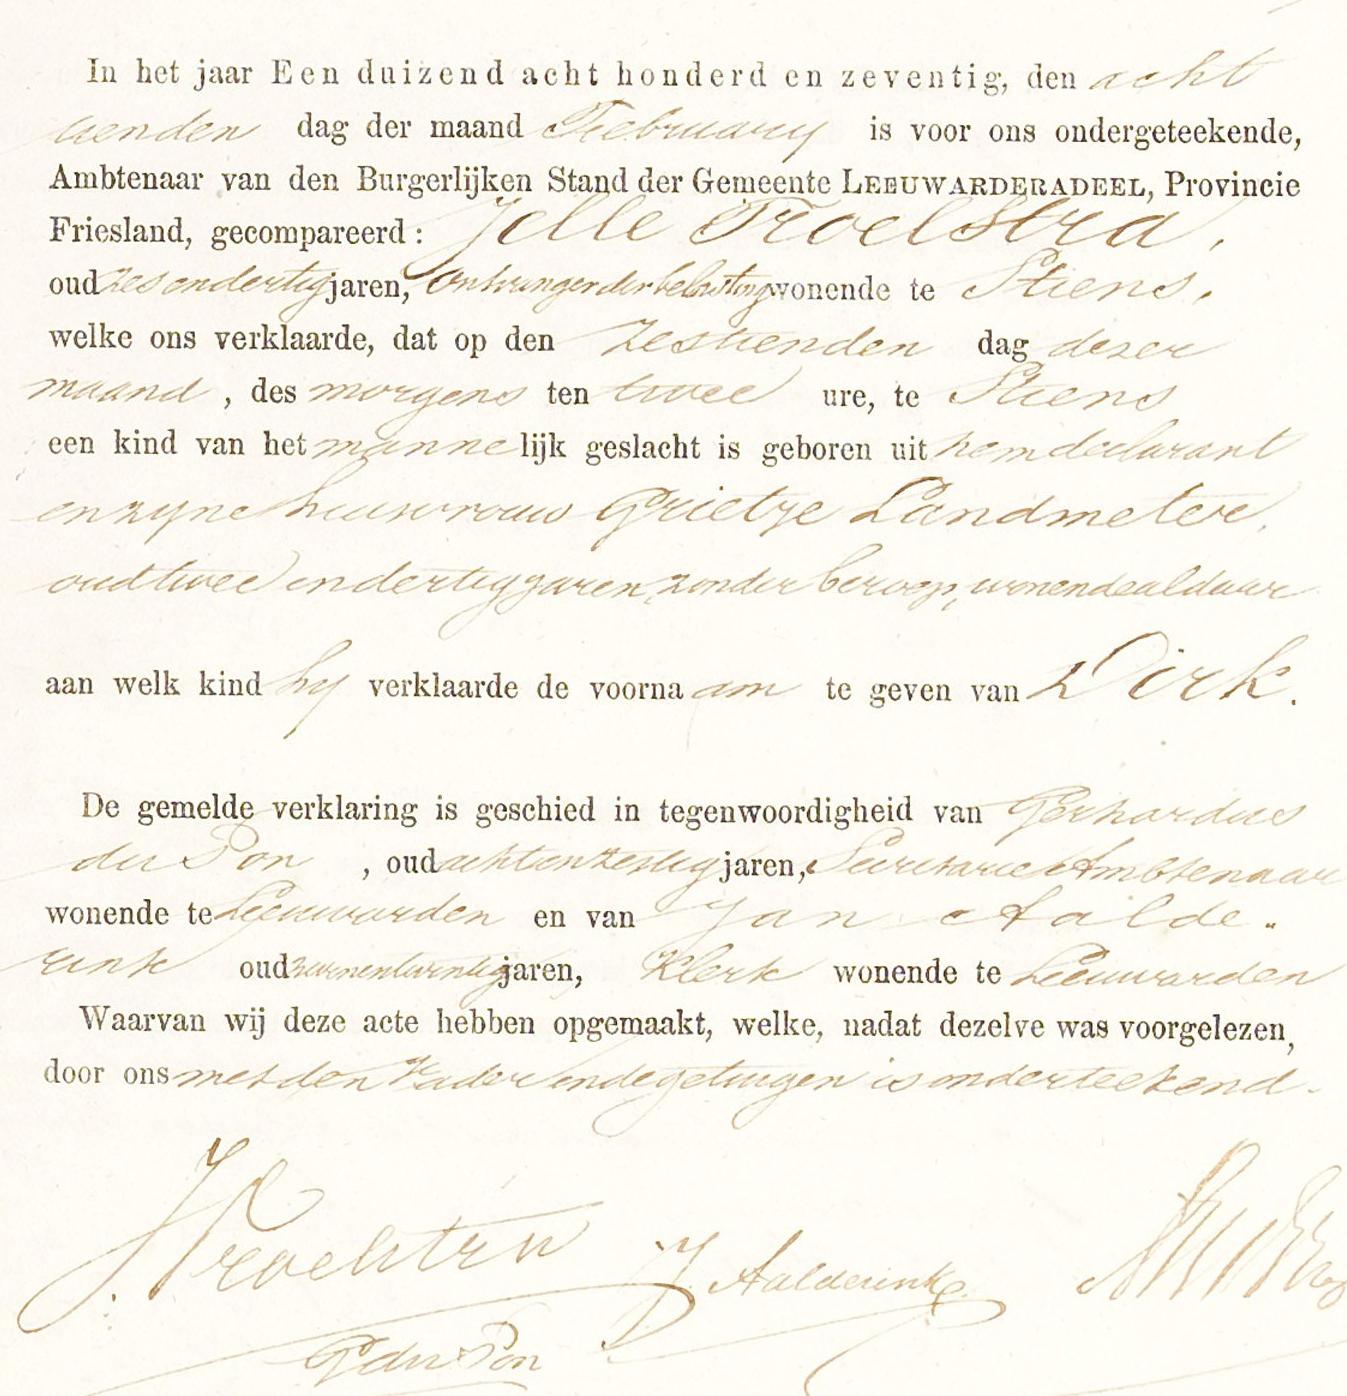 In het jaar Een duizend acht honderd en zeventig, den acht
tienden dag der maand February is voor ons ondergeteekende,
Ambtenaar van den Burgerlijken Stand der Gemeente LEEUWARDERADEEL, Provincie
Friesland, gecompareerd: Jelle Troelstra,
oud zesendertig jaren, Ontvanger der belasting wonende te Stiens,
welke ons verklaarde, dat op den zestienden dag dezer
maand, des morgens ten twee ure, te Stiens
een kind van het mannelijk geslacht is geboren uit hem declarant
en zyne huisvrouw Grietje Landmeter,
oud twee en dertig jaren, zonder beroep, wonende aldaar
aan welk kind hy verklaarde de voornaam te geven van Dirk.
De gemelde verklaring is geschied in tegenwoordigheid van Gerhardus
du Pon, oud achtenzestig jaren, Secretarie Ambtenaar
wonende te Leeuwarden en van Jan Aalde-
rink oud zevenentwintig jaren, Klerk wonende te Leeuwarden
Waarvan wij deze acte hebben opgemaakt, welke, nadat dezelve was voorgelezen,
door ons met den Vader en de getuigen is onderteekend.
J. Troelstra J Aalderink
G du Pon